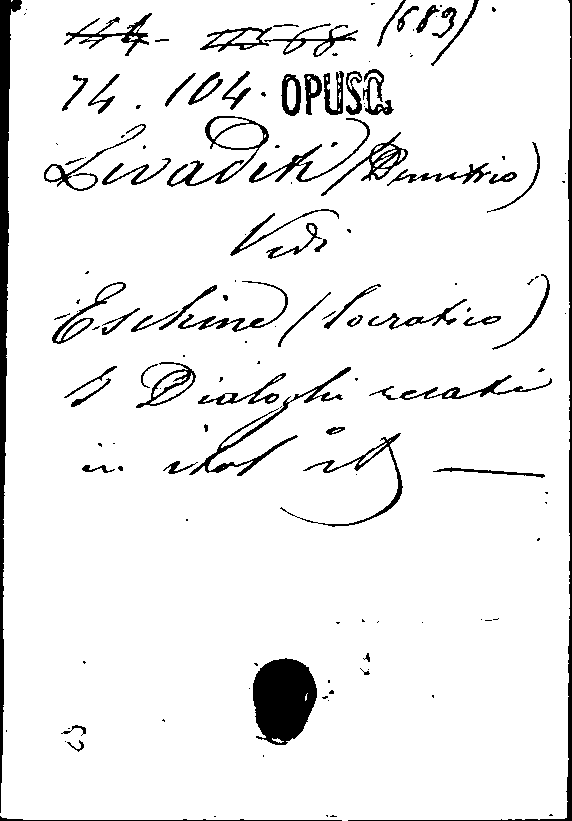 (689)
74. 104. OPUSC.
Livaditi (Demetrio)
Vedi
Eschine (Socratico)
I Dialoghi recati
in ital